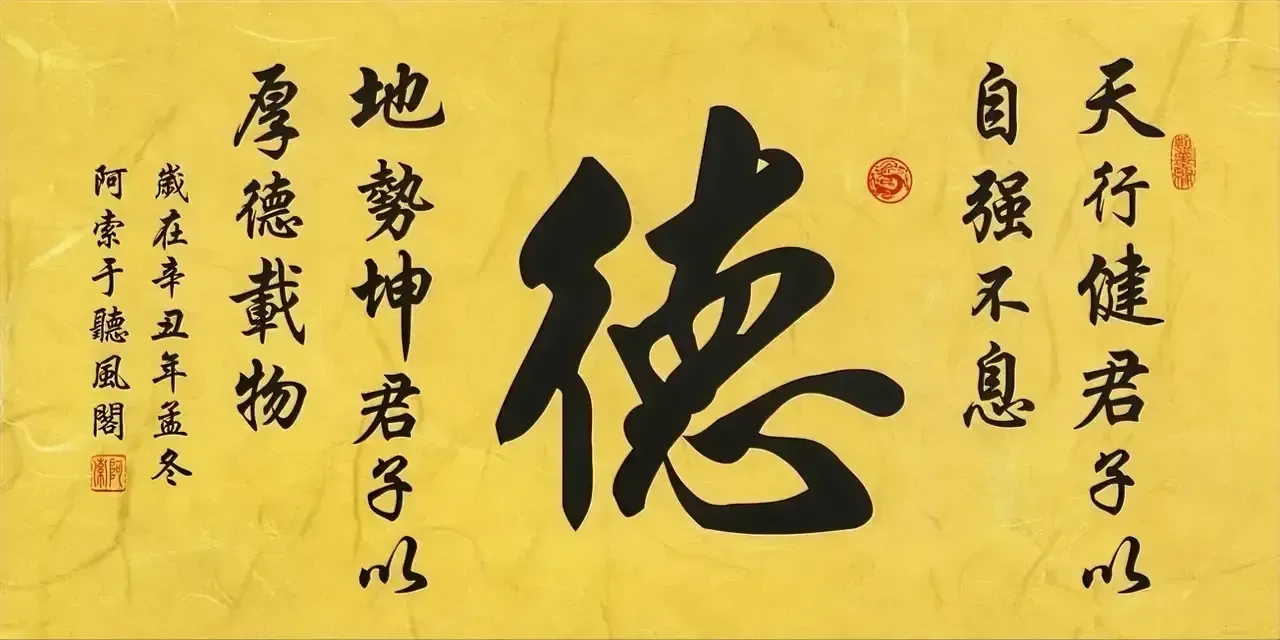 天行健君子以
自强不息
德
地勢坤君子以
厚德載物
歲在辛丑年孟冬
阿索于聽風閣
阿索